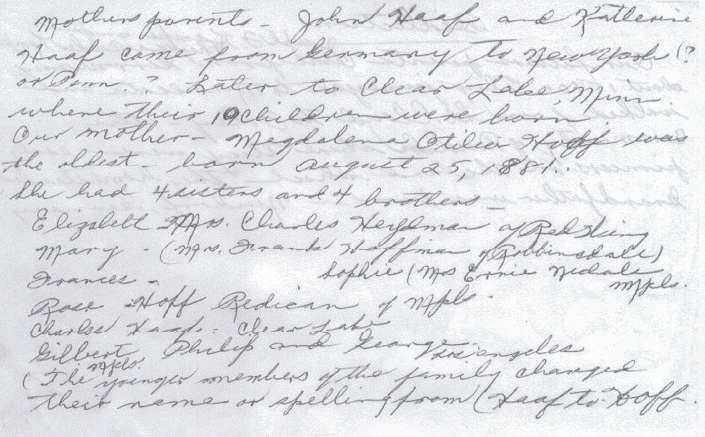 Mothers parents - John Haaf and Katherine
Haaf came from Germany to New York (?
or Penn. ? Later to Clear Lake, Minn
where their 10 children were born
Our mother - Magdalena Otilia Hoff was
the oldest - born August 25, 1881..
She had 4 sisters and 4 brothers -
Elizabeth Mrs. Charles of Red Wing
Mary - (Mrs. Frank Hoffman of Robbinsdale)
Frances - Sophie (Mrs Ernie
Mpls.
Rose Hoff Redican of Mpls.
Charles Haaf - Clear Lake
Gilbert Philip and George Los angeles
Mpls.
(The younger members of the family changed
their name or spelling from (Haaf to Hoff.